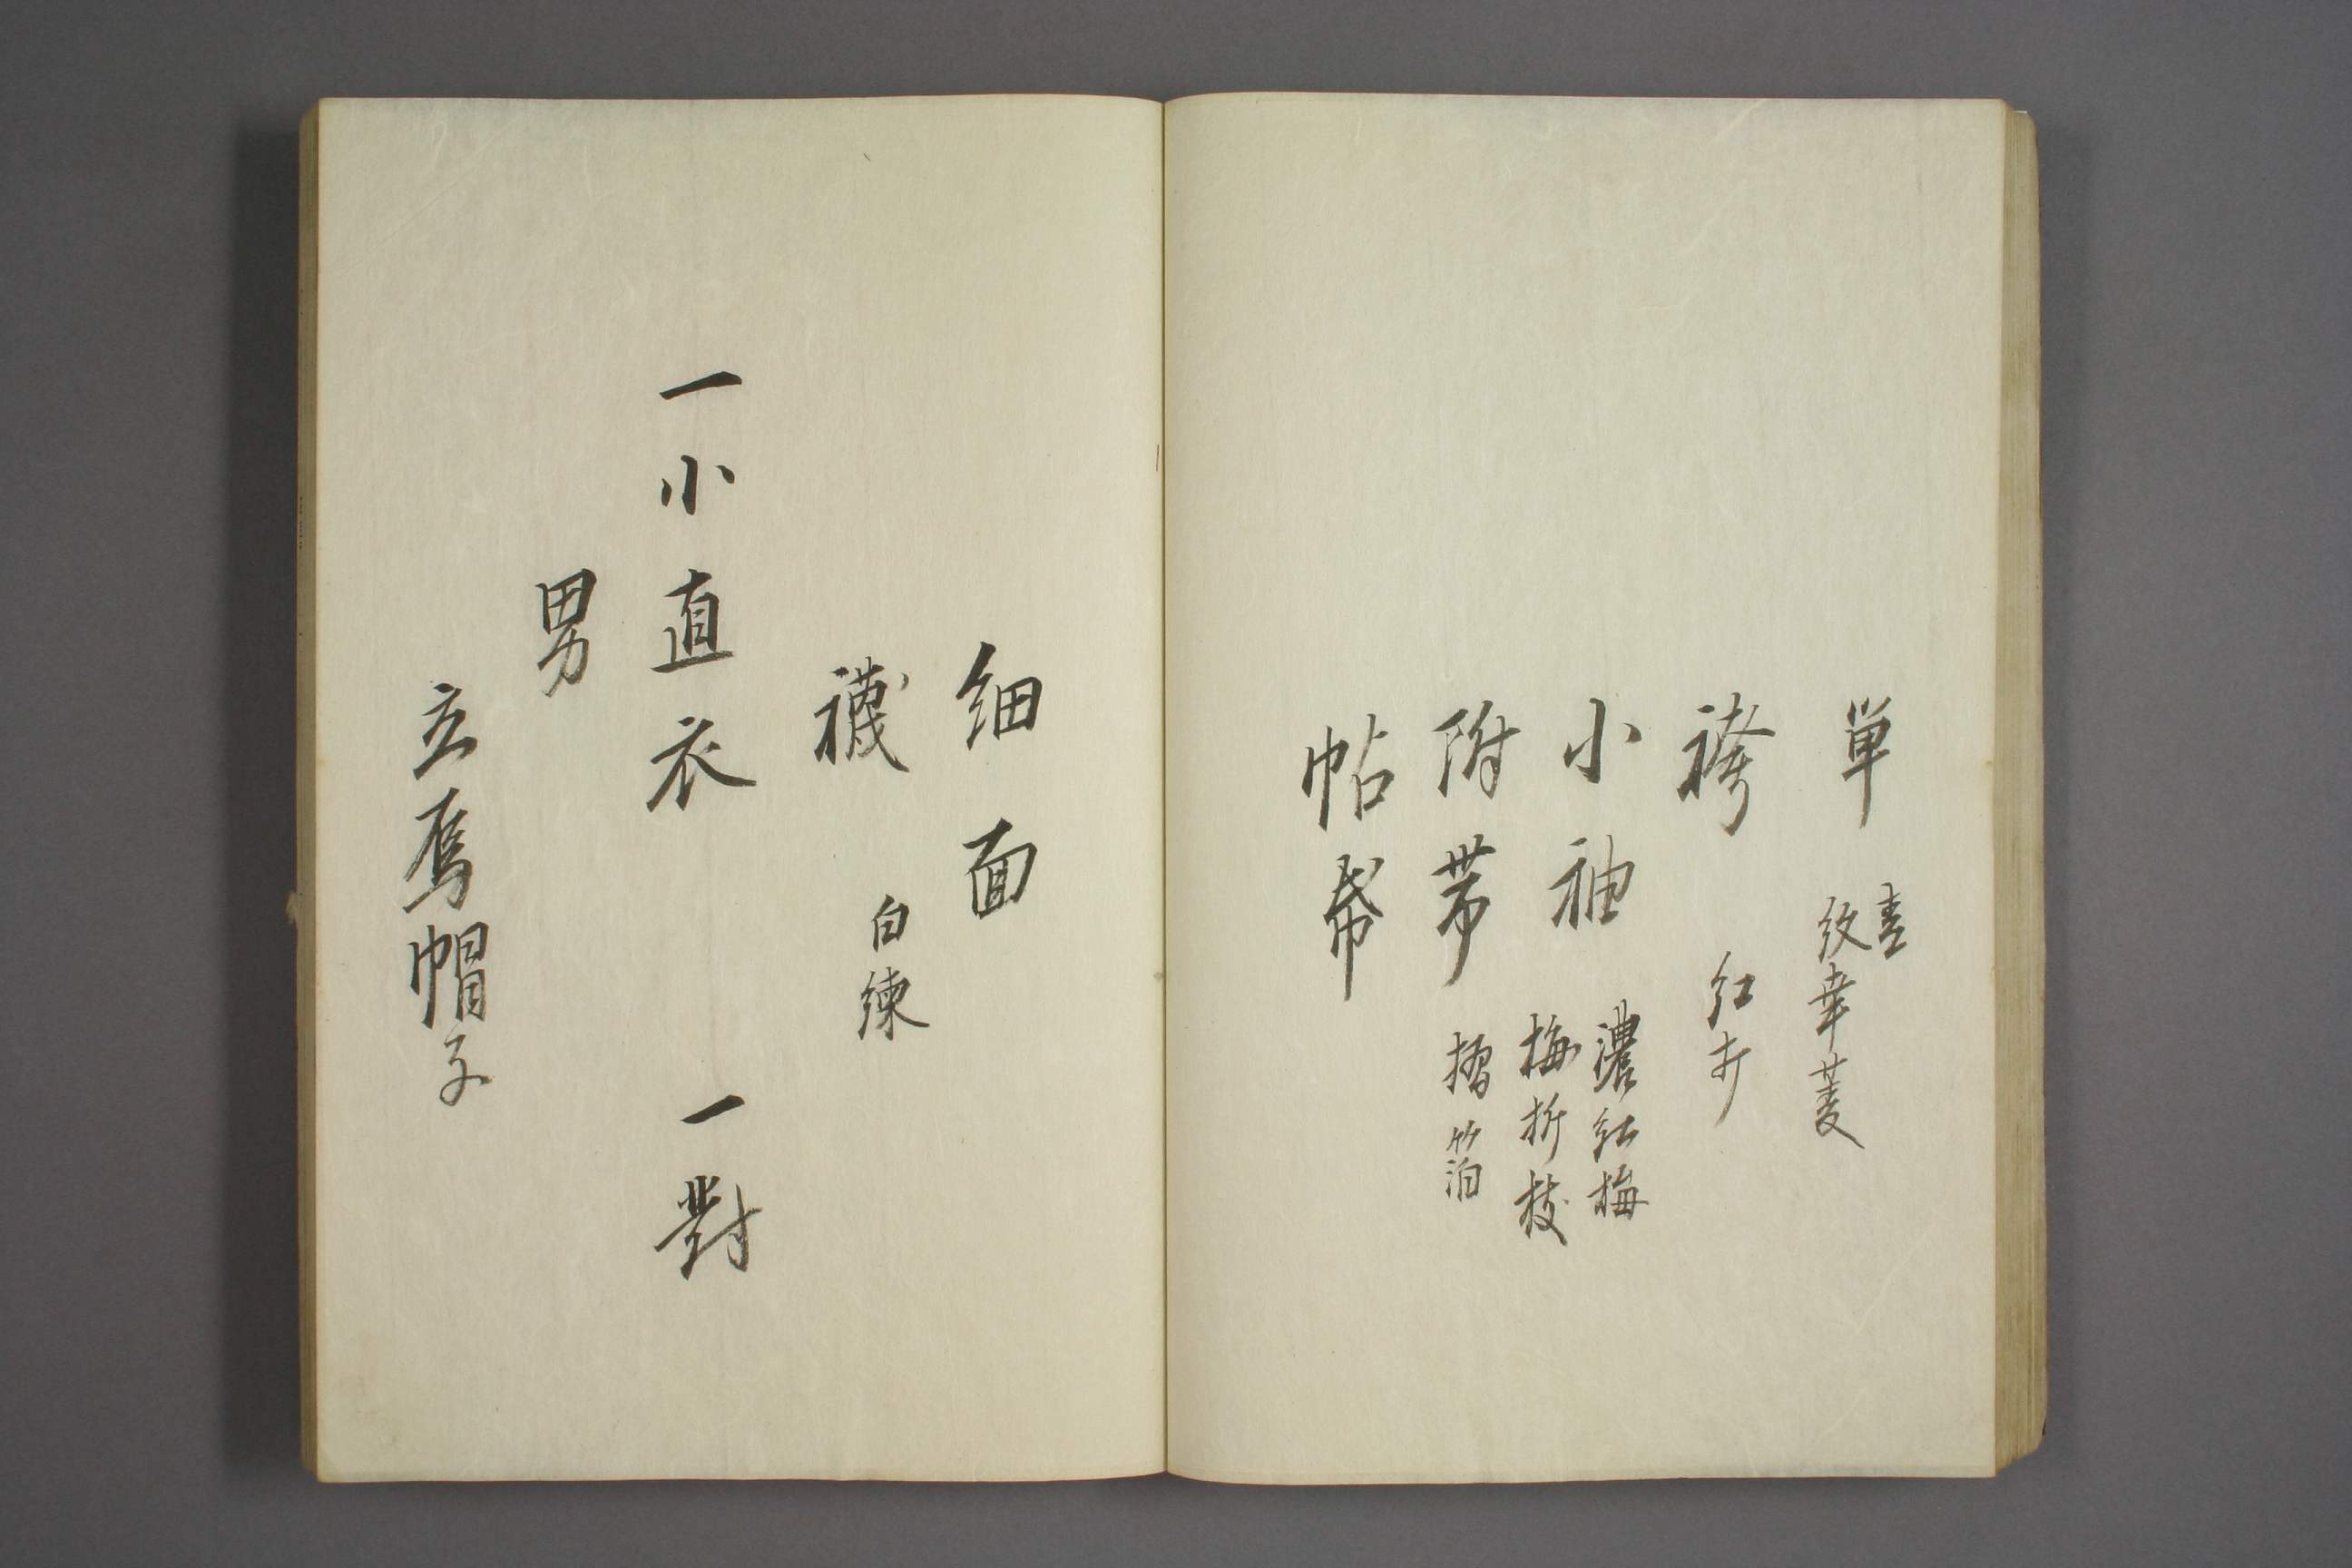 単 青
紋幸菱
袴 紅打
小袖 濃紅梅
梅折枝
附帯 摺箔
帖帋
细面
襪 白練
一小直衣 一對
男
立烏帽子